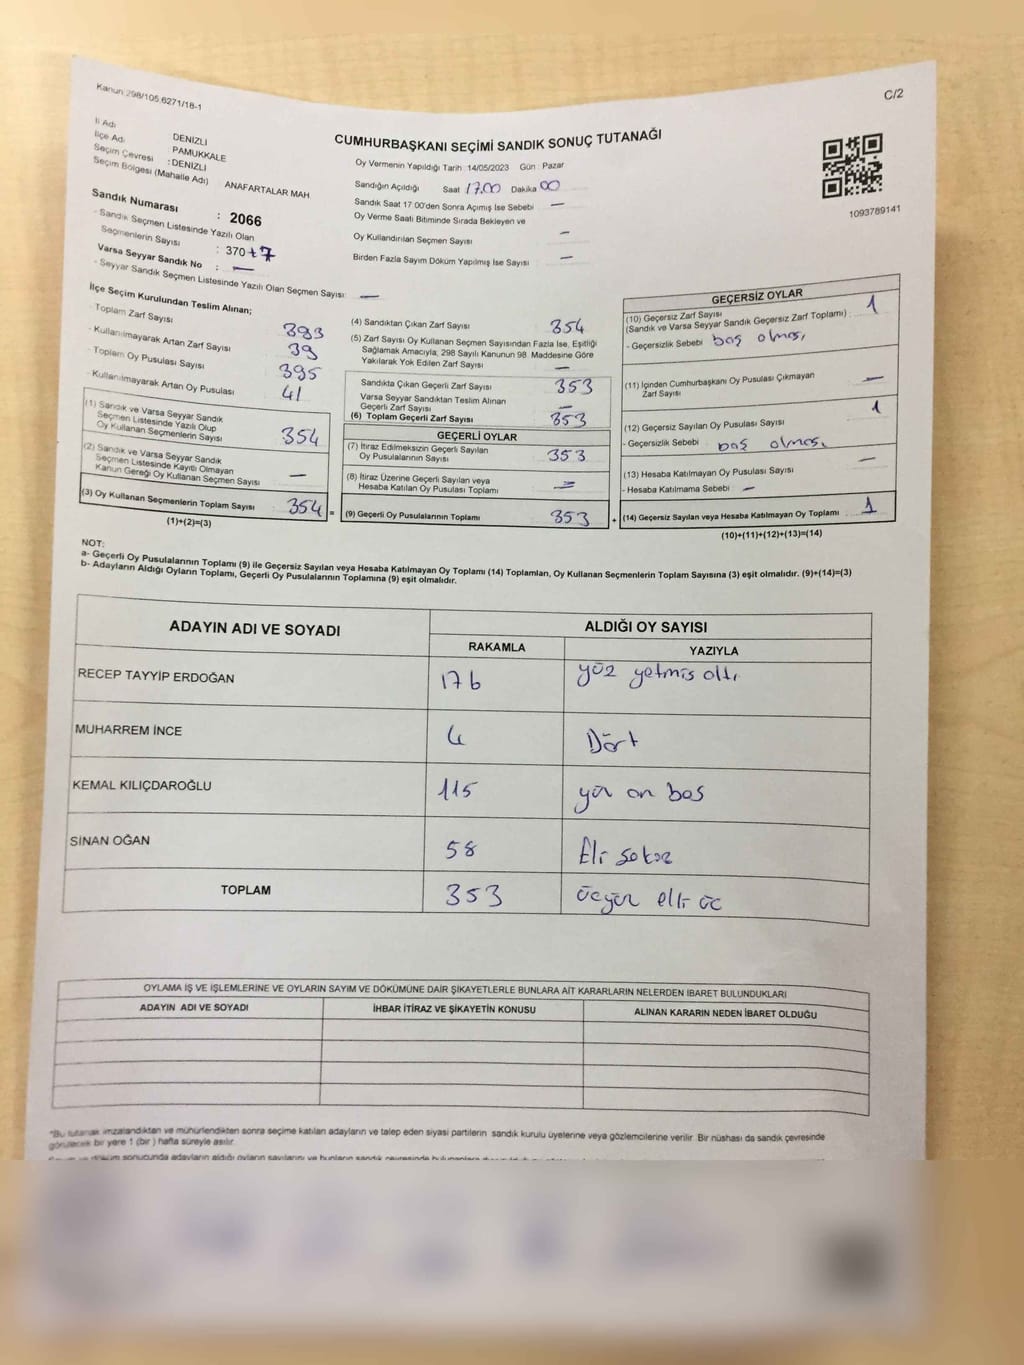 Kanun 298/105.6271/18-1
C/2
İl Adı DENİZLİ
İlçe Adı PAMUKKALE
Seçim Çevresi : DENİZLİ
Seçim Bölgesi (Mahalle Adı) ANAFARTALAR MAH
CUMHURBAŞKANI SEÇİMİ SANDIK SONUÇ TUTANAĞI
Oy Vermenin Yapıldığı Tarih 14/05/2023 Gün : Pazar
Sandığın Açıldığı Saat 17.00 Dakika 00
Sandık Saat 17.00'den Sonra Açımış İse Sebebi —
Oy Verme Saati Bitiminde Sırada Bekleyen ve
Oy Kullandırılan Seçmen Sayısı —
Birden Fazla Sayım Döküm Yapılmış İse Sayısı —
1093789141
Sandık Numarası : 2066
- Sandık Seçmen Listesinde Yazılı Olan
Seçmenlerin Sayısı : 370 +7
Varsa Seyyar Sandık No : —
- Seyyar Sandık Seçmen Listesinde Yazılı Olan Seçmen Sayısı: —
İlçe Seçim Kurulundan Teslim Alınan;
- Toplam Zarf Sayısı 393
- Kullanılmayarak Artan Zarf Sayısı 39
- Toplam Oy Pusulası Sayısı 395
- Kullanılmayarak Artan Oy Pusulası 41
(1) Sandık ve Varsa Seyyar Sandık
Seçmen Listesinde Yazılı Olup
Oy Kullanan Seçmenlerin Sayısı 354
(2) Sandık ve Varsa Seyyar Sandık
Seçmen Listesinde Kayıtlı Olmayan
Kanun Gereği Oy Kullanan Seçmen Sayısı —
(3) Oy Kullanan Seçmenlerin Toplam Sayısı 354 =
(1)+(2)=(3)
(4) Sandıktan Çıkan Zarf Sayısı 354
(5) Zarf Sayısı Oy Kullanan Seçmen Sayısından Fazla İse, Eşitliği
Sağlamak Amacıyla, 298 Sayılı Kanunun 98. Maddesine Göre
Yakılarak Yok Edilen Zarf Sayısı —
Sandıkta Çıkan Geçerli Zarf Sayısı 353
Varsa Seyyar Sandıktan Teslim Alınan
Geçerli Zarf Sayısı —
(6) Toplam Geçerli Zarf Sayısı 353
GEÇERLİ OYLAR
(7) İtiraz Edilmeksizin Geçerli Sayılan
Oy Pusulalarının Sayısı 353
(8) İtiraz Üzerine Geçerli Sayılan veya
Hesaba Katılan Oy Pusulası Toplamı =
(9) Geçerli Oy Pusulalarının Toplamı 353 +
GEÇERSİZ OYLAR
(10) Geçersiz Zarf Sayısı 1
(Sandık ve Varsa Seyyar Sandık Geçersiz Zarf Toplamı) :
- Geçersizlik Sebebi boş olması
(11) İçinden Cumhurbaşkanı Oy Pusulası Çıkmayan
Zarf Sayısı —
(12) Geçersiz Sayılan Oy Pusulası Sayısı 1
- Geçersizlik Sebebi boş olması
(13) Hesaba Katılmayan Oy Pusulası Sayısı —
- Hesaba Katılmama Sebebi —
(14) Geçersiz Sayılan veya Hesaba Katılmayan Oy Toplamı 1
(10)+(11)+(12)+(13)=(14)
NOT:
a- Geçerli Oy Pusulalarının Toplamı (9) ile Geçersiz Sayılan veya Hesaba Katılmayan Oy Toplamı (14) Toplamları, Oy Kullanan Seçmenlerin Toplam Sayısına (3) eşit olmalıdır. (9)+(14)=(3)
b- Adayların Aldığı Oyların Toplamı, Geçerli Oy Pusulalarının Toplamına (9) eşit olmalıdır.
ADAYIN ADI VE SOYADI ALDIĞI OY SAYISI
RAKAMLA YAZIYLA
RECEP TAYYİP ERDOĞAN 176 yüz yetmis altı
MUHARREM İNCE 4 Dört
KEMAL KILIÇDAROĞLU 115 yüz on beş
SİNAN OĞAN 58 Elli sekiz
TOPLAM 353 üçyüz elli üç
OYLAMA İŞ VE İŞLEMLERİNE VE OYLARIN SAYIM VE DÖKÜMÜNE DAİR ŞİKAYETLERLE BUNLARA AİT KARARLARIN NELERDEN İBARET BULUNDUKLARI
ADAYIN ADI VE SOYADI İHBAR İTİRAZ VE ŞİKAYETİN KONUSU ALINAN KARARIN NEDEN İBARET OLDUĞU
*Bu tutanak imzalandıktan ve mühürlendikten sonra seçime katılan adayların ve talep eden siyasi partilerin sandık kurulu üyelerine veya gözlemcilerine verilir. Bir nüshası da sandık çevresinde
görülecek bir yere 1 (bir ) hafta süreyle asılır.
döküm sonucunda adayların aldığı oyların sayılarını ve bunların sandık çevresinde